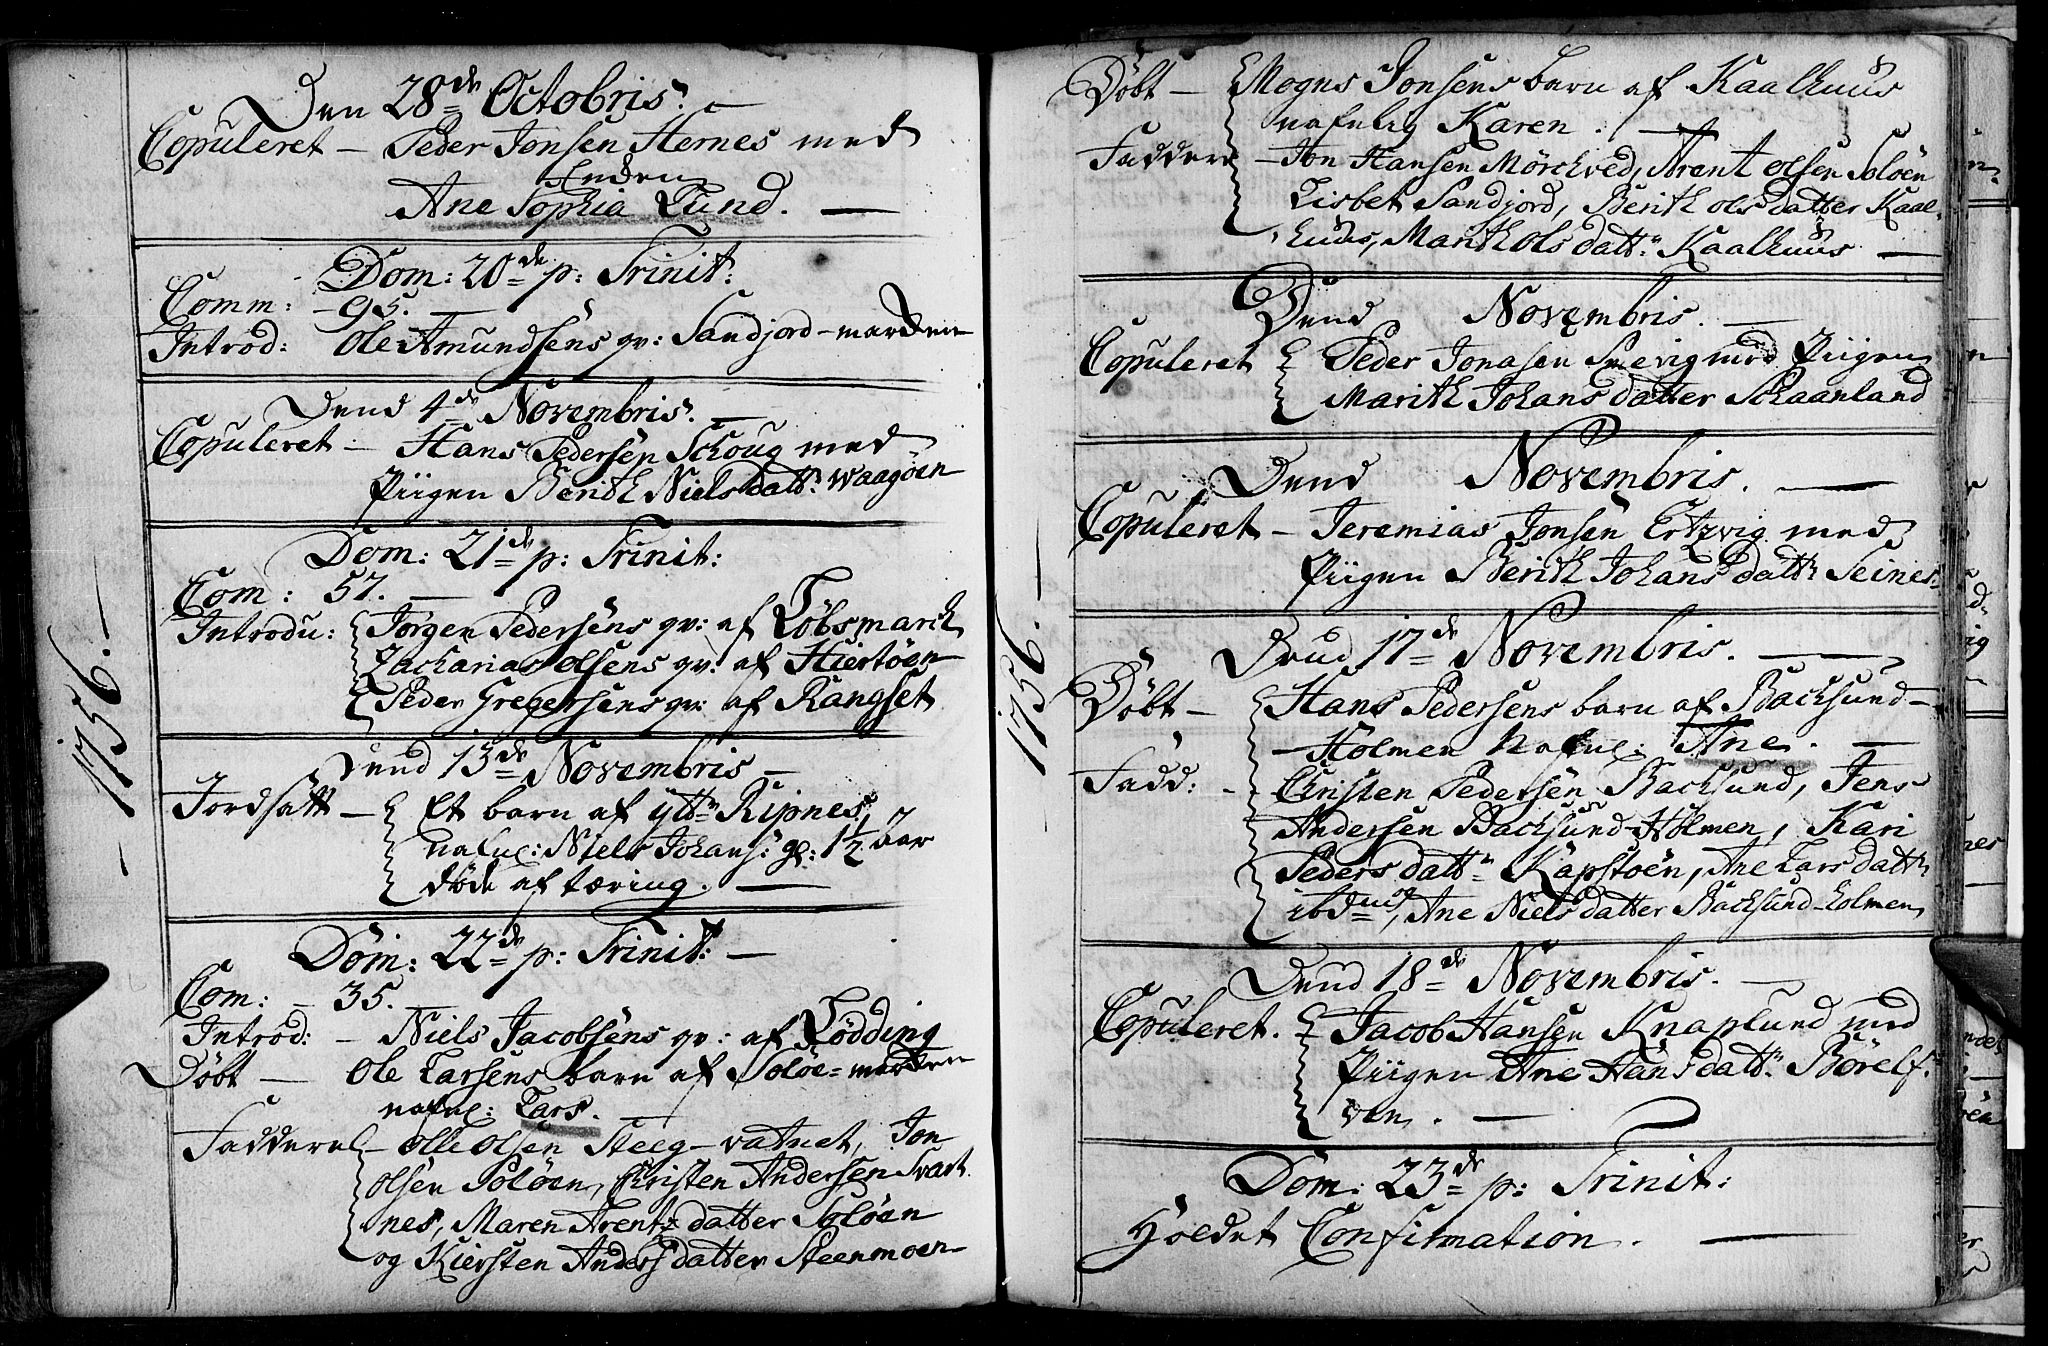 1756.
Den 28de Octobris.
Copuleret – Peder Jonsen Hernes med
Enken
Ane Sophia Lund.
Dom: 20de p: Trinit:
Comm: – 95.
Introd: Ole Amundsens qv: Sandjord-marken
Dend 4de Novembris.
Copuleret – Hans Pedersen Schoug med
Piigen Berith Nielsdattr. Waagøen
Dom: 21de p: Trinit:
Com: 57.
Introdu: Jørgen Pedersens qv: af Løbsmarck
Zacharias Olsens qv: af Hiertøen
Peder Gregersens qv: af Rangset
Dend 13de Novembris –
Jordsatt – Et barn af yttr Ripnes,
nafnl: Niels Johans: gl: 1½ aar
døde af tæring.
Dom: 22de p: Trinit: –
Com: – 35.
Introd: – Niels Jacobsens qv: af Lødding
Døbt – Ole Larsens barn af Soløe-marken
nafnl: Lars.
Faddere – Olle Olsen Steeg-vatnet, Jon
Olsen Soløen, Christen Andersen Svart
nes, Maren Arentzdatter Soløen
og Kiersten Andersdatter Steenmoen
1756.
Døbt – Mogns Jonsens barn af Kaalhuus
nafnlig Karen.
Faddere – Jon Hansen Mørchved, Arent Olsen Soløen
Lisbet Sandjord, Berith Olsdatter Kaal-
huus, Marith Olsdattr. Kaalhuus –
Dend Novembris.
Copuleret Peder Jonasen Snevig med Piigen
Marith Johansdatter Schaanland
Dend Novembris.
Copuleret – Jeremias Jonsen Ertzvig med
Piigen Berith Johansdattr Seines
Dend 17de Novembris.
Døbt – Hans Pedersens barn af Backsund-
-Holmen Nafnl: Ane.
Fadd: – Christen Pedersen Backsund, Jens
Andersen Backsund-Holmen, Kari
Pedersdattr Kapstøen, Ane Larsdattr
ibdm og, Ane Nielsdatter Backsund-holmen
Dend 18de Novembris.
Copuleret. Jacob Hansen Knaplund med
Piigen Ane Hansdattr. Børelf-
ven.
Dom: 23de p: Trinit:
Holdet Confirmation.